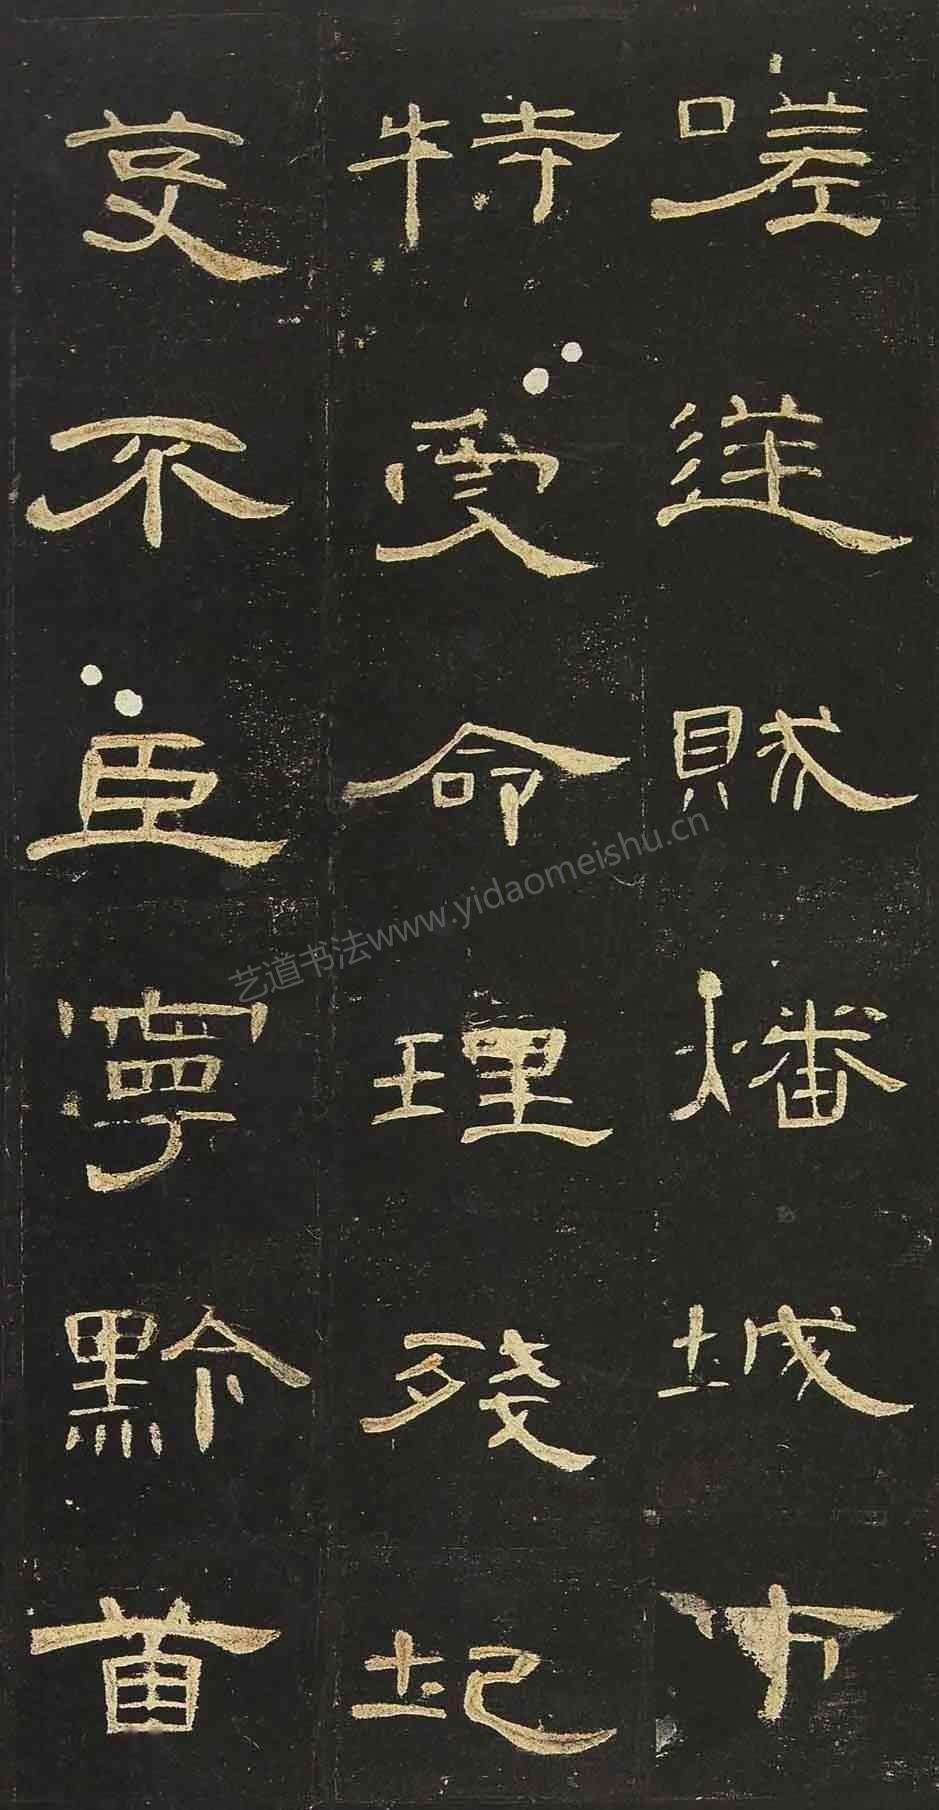 嗟逆賊燔城市
特受命理殘圮
芟不臣寧黔首
艺道书法www.yidaomeishu.cn